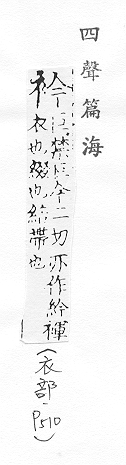 四聲篇海
衿
禁今二切亦作紟褌
衣也綴也帶也
(衣部.P510)